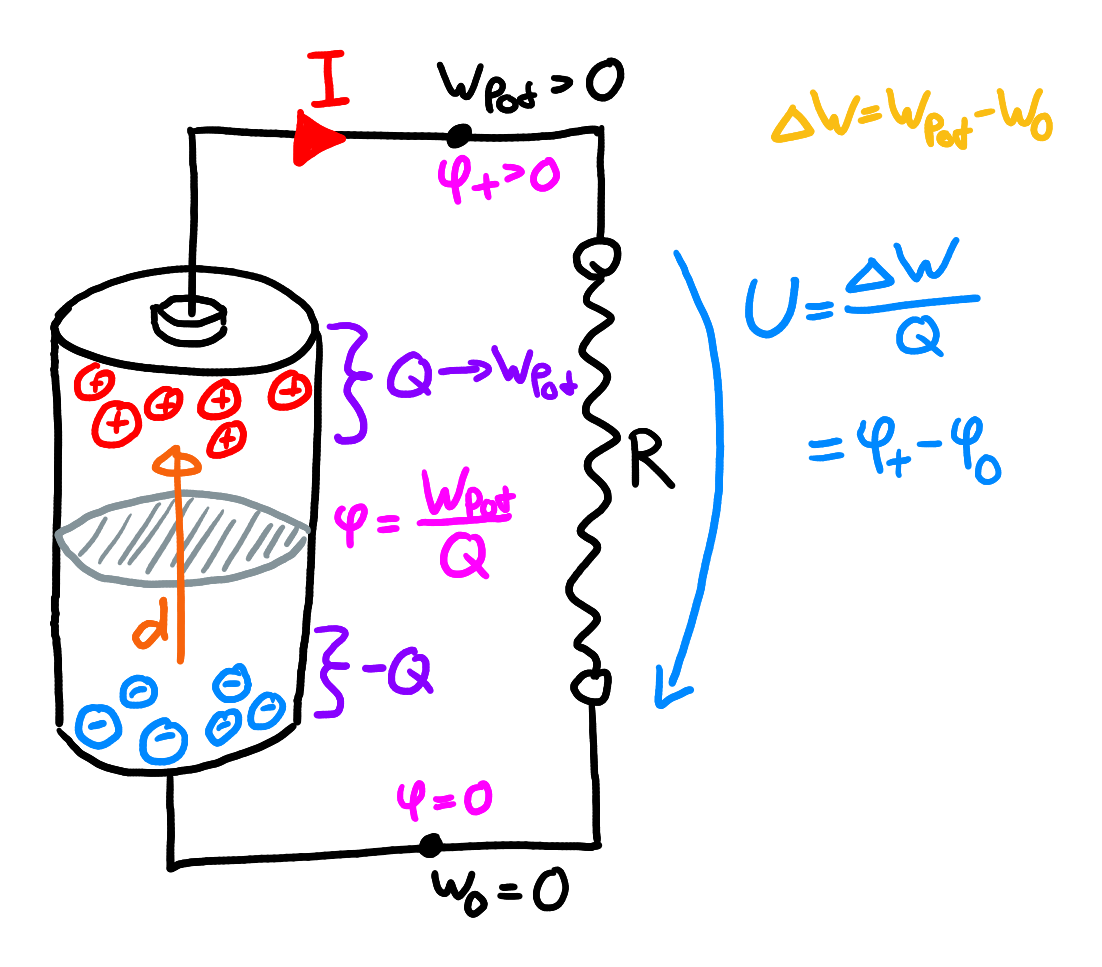 I
W_Pot > 0
ΔW = W_Pot - W_0
φ_+ > 0
U = ΔW / Q
+ + + + + +
Q → W_Pot
= φ_+ - φ_0
R
φ = W_Pot / Q
d
- Q
- - - - - -
φ = 0
W_0 = 0